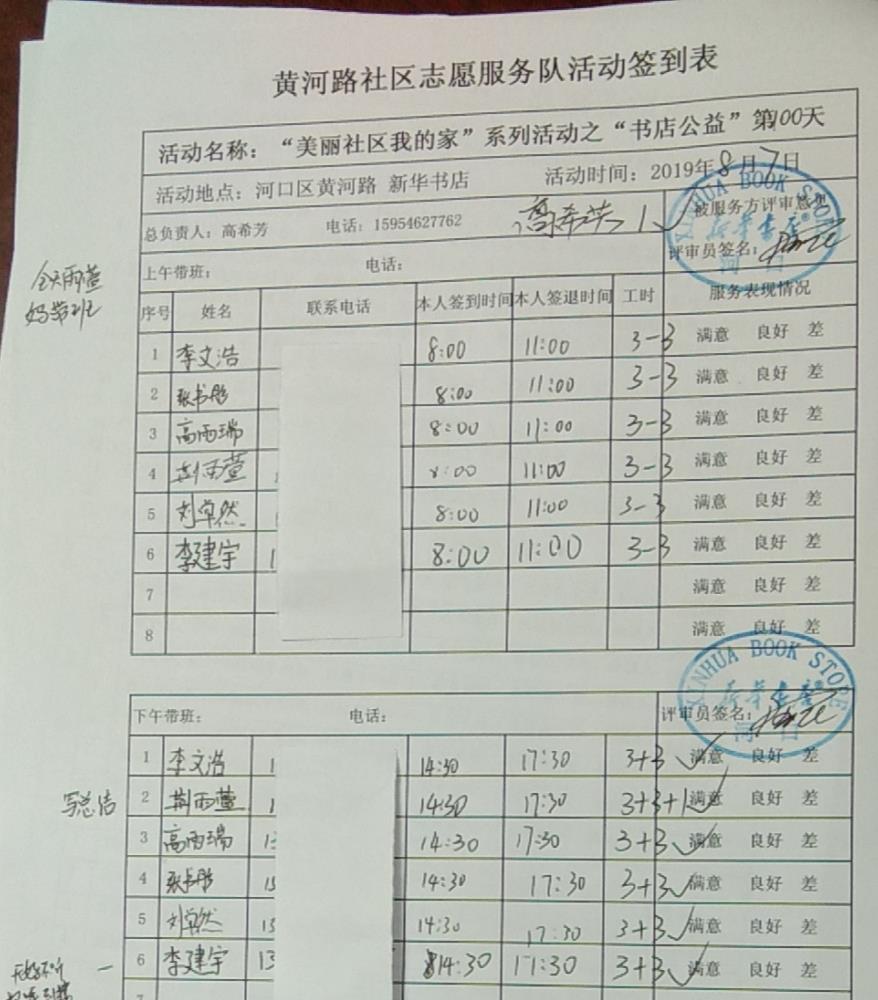 黄河路社区志愿服务队活动签到表
活动名称:“美丽社区我的家”系列活动之“书店公益”第100天
活动地点:河口区黄河路 新华书店 活动时间:2019年8月7日
总负责人:高希芳 电话:15954627762 高希芳 1 被服务方评审意见
XINHUA BOOK STORE
新华书店
河口
评审员签名:
上午带班: 电话:
全天雨萱
妈带班
序号 姓名 联系电话 本人签到时间 本人签退时间 工时 服务表现情况
1 李文浩 8:00 11:00 3-3 满意 良好 差
2 张书彤 8:00 11:00 3-3 满意 良好 差
3 高雨瑞 8:00 11:00 3-3 满意 良好 差
4 荆雨萱 8:00 11:00 3-3 满意 良好 差
5 刘卓然 8:00 11:00 3-3 满意 良好 差
6 李建宇 1 8:00 11:00 3-3 满意 良好 差
7 满意 良好 差
8 满意 良好 差
XINHUA BOOK STORE
新华书店
河口
下午带班: 电话: 评审员签名:
1 李文浩 1 14:30 17:30 3+3 满意 良好 差
写总结
2 荆雨萱 1 14:30 17:30 3+3+1 满意 良好 差
3 高雨瑞 13 14:30 17:30 3+3 满意 良好 差
4 张书彤 15 14:30 17:30 3+3 满意 良好 差
5 刘卓然 13 14:30 17:30 3+3 满意 良好 差
6 李建宇 13 14:30 17:30 3+3 满意 良好 差
7